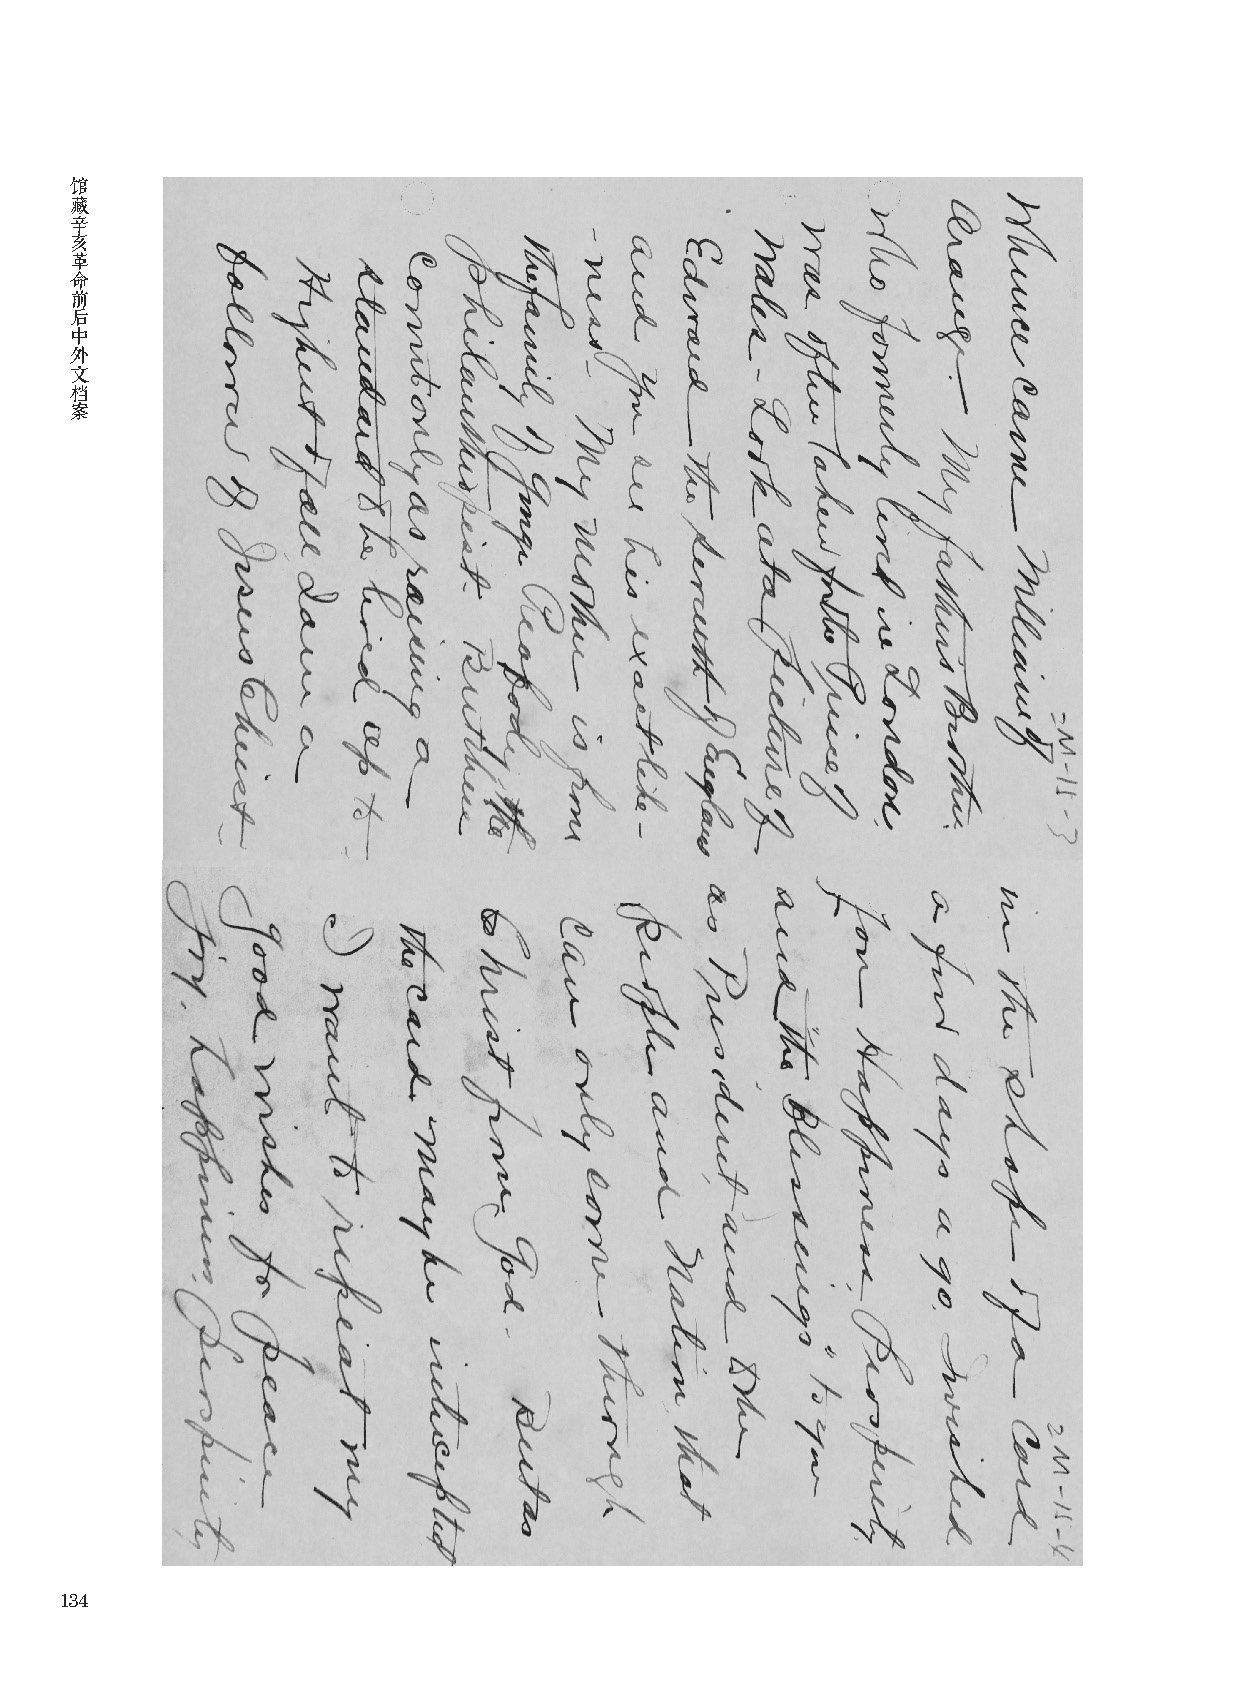 馆藏辛亥革命前后中外文档案
=M-11-3
Whence came William of
Orange. My father's Brother
who formerly lived in London,
was often taken for the Prince of
Wales - Look at a picture of
Edward the Seventh of England
and you see his exact like-
-ness. My mother is from
the family of George Peabody, the
philanthropist. But these
count only as raising a
standard to be lived up to -
Highest of all I am a
follower of Jesus Christ -
2M-11-4
in the shape of a Card
a few days ago. I wished
for Happiness, Prosperity,
and "the Blessings" to you
as President and to the
people and Nation, that
can only come through
Christ from God. But as
the card may be intercepted
I want to repeat my
good wishes for peace
joy, happiness, prosperity,
134